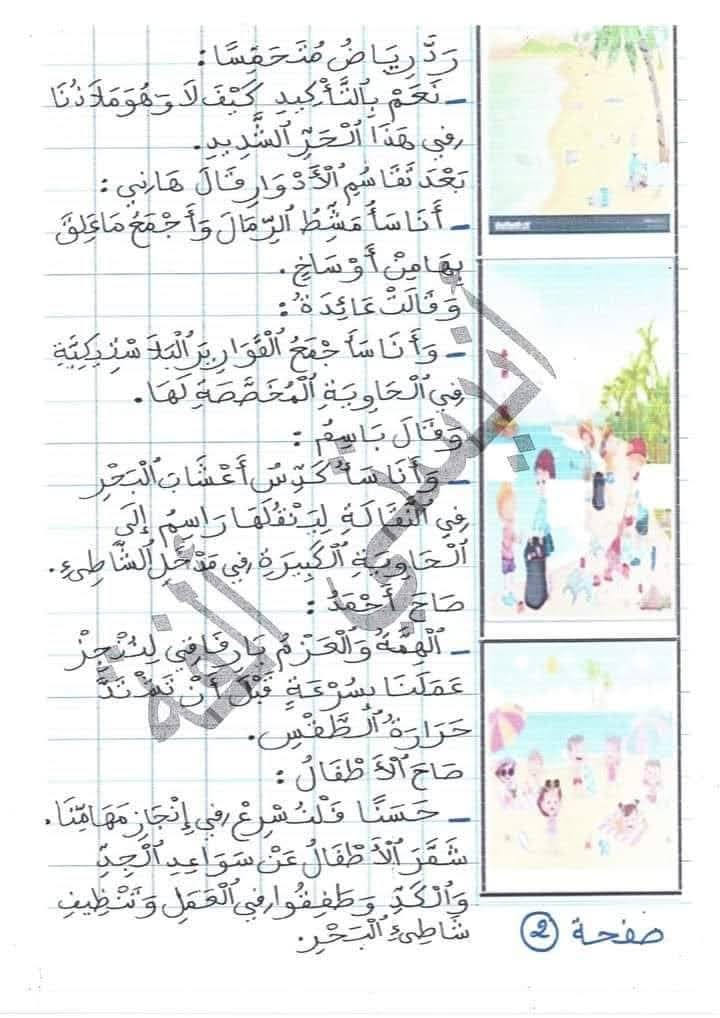 رَدَّ رِيَاضُ مُتَحَمِّسًا :
– نَعَمْ بِالتَّأْكِيدِ كَيْفَ لَا وَهُوَ مَلَاذُنَا
فِي هَذَا الْحَرِّ الشَّدِيدِ.
بَعْدَ تَقَاسُمِ الْأَدْوَارِ قَالَ هَانِي :
– أَنَا سَأُمَشِّطُ الرِّمَالَ وَأَجْمَعُ مَا عَلِقَ
بِهَا مِنْ أَوْسَاخٍ.
وَقَالَتْ عَائِدَةُ :
– وَأَنَا سَأَجْمَعُ الْقَوَارِيرَ الْبَلَاسْتِيكِيَّةَ
فِي الْحَاوِيَةِ الْمُخَصَّصَةِ لَهَا.
وَقَالَ بَاسِمُ :
– وَأَنَا سَأُكَدِّسُ أَعْشَابَ الْبَحْرِ
فِي النَّقَّالَةِ لِيَنْقُلَهَا رَاسِمُ إِلَى
الْحَاوِيَةِ الْكَبِيرَةِ فِي مَدْخَلِ الشَّاطِئِ.
صَاحَ أَحْمَدُ :
– الْهِمَّةُ وَالْعَزْمُ يَا رِفَاقِي لِنُنْجِزْ
عَمَلَنَا بِسُرْعَةٍ قَبْلَ أَنْ تَشْتَدَّ
حَرَارَةُ الطَّقْسِ.
صَاحَ الْأَطْفَالُ :
– حَسَنًا فَلْنُسْرِعْ فِي إِنْجَازِ مَهَامِّنَا.
شَمَّرَ الْأَطْفَالُ عَنْ سَوَاعِدِ الْجِدِّ
وَالْكَدِّ وَطَفِقُوا فِي الْعَمَلِ وَتَنْظِيفِ
شَاطِئِ الْبَحْرِ.
صفحة 2